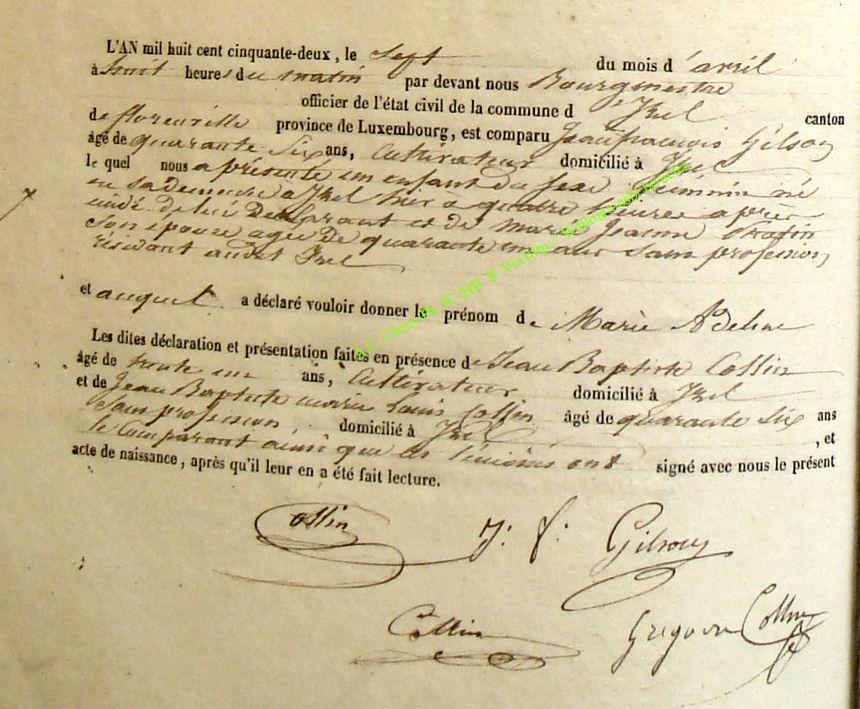 L'AN mil huit cent cinquante-deux, le sept du mois d'avril
à huit heures du matin par devant nous Bourgmestre
officier de l'état civil de la commune d'Izel canton
de florenville province de Luxembourg, est comparu Jean francois Gilson
âgé de quarante six ans, Cultivateur domicilié à Izel
le quel nous a présenté un enfant du sexe féminin né
en sa demeure a Izel hier a quatre heures après
midi de lui Déclarant et de marie Jeanne
son épouse agée de quarante un ans sans profession,
résidant audit Izel
et auquel a déclaré vouloir donner le prénom de Marie Adeline
Les dites déclaration et présentation faites en présence de Jean Baptiste Collin
âgé de trente un ans, Cultivateur domicilié à Izel
et de Jean Baptiste marie Louis Collin âgé de quarante six ans
sans profession domicilié à Izel , et
le Comparant ainsi que les témoins ont signé avec nous le présent
acte de naissance, après qu'il leur en a été fait lecture.
Collin J. f. Gilson
Collin Gregoire Collin